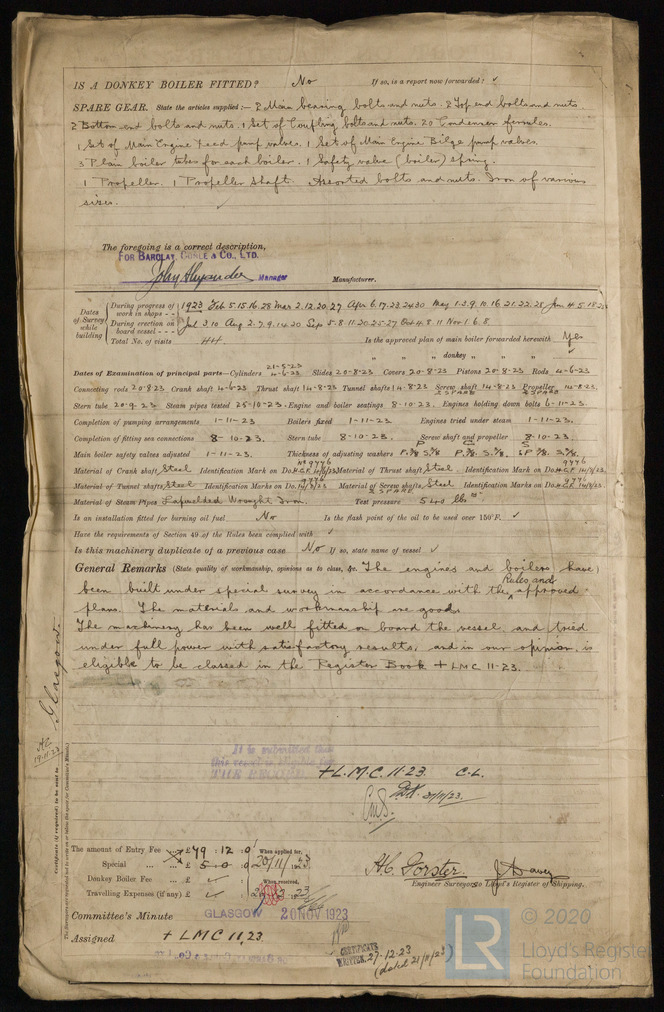 IS A DONKEY BOILER FITTED? No If so, is a report now forwarded? ✓
SPARE GEAR. State the articles supplied:— 2 Main bearing bolts and nuts. 2 Top end bolts and nuts
2 Bottom end bolts and nuts. 1 Set of Coupling bolts and nuts. 20 Condenser ferrules.
1 Set of Main Engine Feed pump valves. 1 Set of Main Engine Bilge pump valves.
3 Plain boiler tubes for each boiler. 1 Safety valve (boiler) spring.
1 Propeller. 1 Propeller Shaft. Assorted bolts and nuts. Iron of various
sizes.
The foregoing is a correct description,
FOR BARCLAY, CURLE & CO., LTD.
John Alexander Manager Manufacturer.
Dates of Survey while building
During progress of work in shops - - 1923 Feb 5.15.16.28 Mar 2.12.20.27 Apr 6.17.23.24.30 May 1.2.9.10.16.21.22.28 Jun 4.5.18.
During erection on board vessel - - - Jul 3.10 Aug 2.7.9.14.20 Sep 5.8.11.20.25.27 Oct 4.8.11 Nov 1.6.8
Total No. of visits 44. Is the approved plan of main boiler forwarded herewith Yes
" " " donkey " " " ✓
Dates of Examination of principal parts—Cylinders 21-5-23 4-6-23 Slides 20-8-23 Covers 20-8-23 Pistons 20-8-23 Rods 4-6-23
Connecting rods 20-8-23 Crank shaft 4-6-23 Thrust shaft 14-8-23 Tunnel shafts 14-8-23 Screw shaft 14-8-23 & SPARE Propeller 14-8-23. & SPARE
Stern tube 20-9-23 Steam pipes tested 25-10-23. Engine and boiler seatings 8-10-23. Engines holding down bolts 6-11-23.
Completion of pumping arrangements 1-11-23 Boilers fixed 1-11-23 Engines tried under steam 1-11-23.
Completion of fitting sea connections 8-10-23. Stern tube 8-10-23. Screw shaft and propeller 8-10-23.
Main boiler safety valves adjusted 1-11-23. Thickness of adjusting washers
Material of Crank shaft Steel Identification Mark on Do. No 9446 H.C.F. Material of Thrust shaft Steel Identification Mark on Do. 9446 H.C.F.
Material of Tunnel shafts Steel Identification Marks on Do. 9446 Material of Screw shafts & SPARE Steel Identification Marks on Do. 9446 H.C.F.
Material of Steam Pipes Lapwelded Wrought Iron. Test pressure 540 lbs
Is an installation fitted for burning oil fuel No Is the flash point of the oil to be used over 150°F. ✓
Have the requirements of Section 49 of the Rules been complied with ✓
Is this machinery duplicate of a previous case No If so, state name of vessel ✓
General Remarks (State quality of workmanship, opinions as to class, &c. The engines and boilers have
been built under special survey in accordance with the Rules and approved
plans. The materials and workmanship are good.
The machinery has been well fitted on board the vessel and tried
under full power with satisfactory results, and in our opinion, is
eligible to be classed in the Register Book + LMC 11-23.
Glasgow.
19.11.23
It is submitted that
this vessel is eligible for
THE RECORD. + L.M.C. 11.23. C.L.
21/11/23.
The amount of Entry Fee ... £ 79 : 12 : 0 When applied for,
Special ... ... £ 5 : 0 : 0 20/11/1923
Donkey Boiler Fee ... £ ✓ : : When received,
Travelling Expenses (if any) £ ✓ : :
H.C. Forster. J Davey
Engineer Surveyors to Lloyd's Register of Shipping.
Committee's Minute GLASGOW 20 NOV 1923
Assigned + LMC 11.23
CERTIFICATE WRITTEN. 27.12.23
(dated 21/11/23)
© 2020
LR Lloyd's Register
Foundation